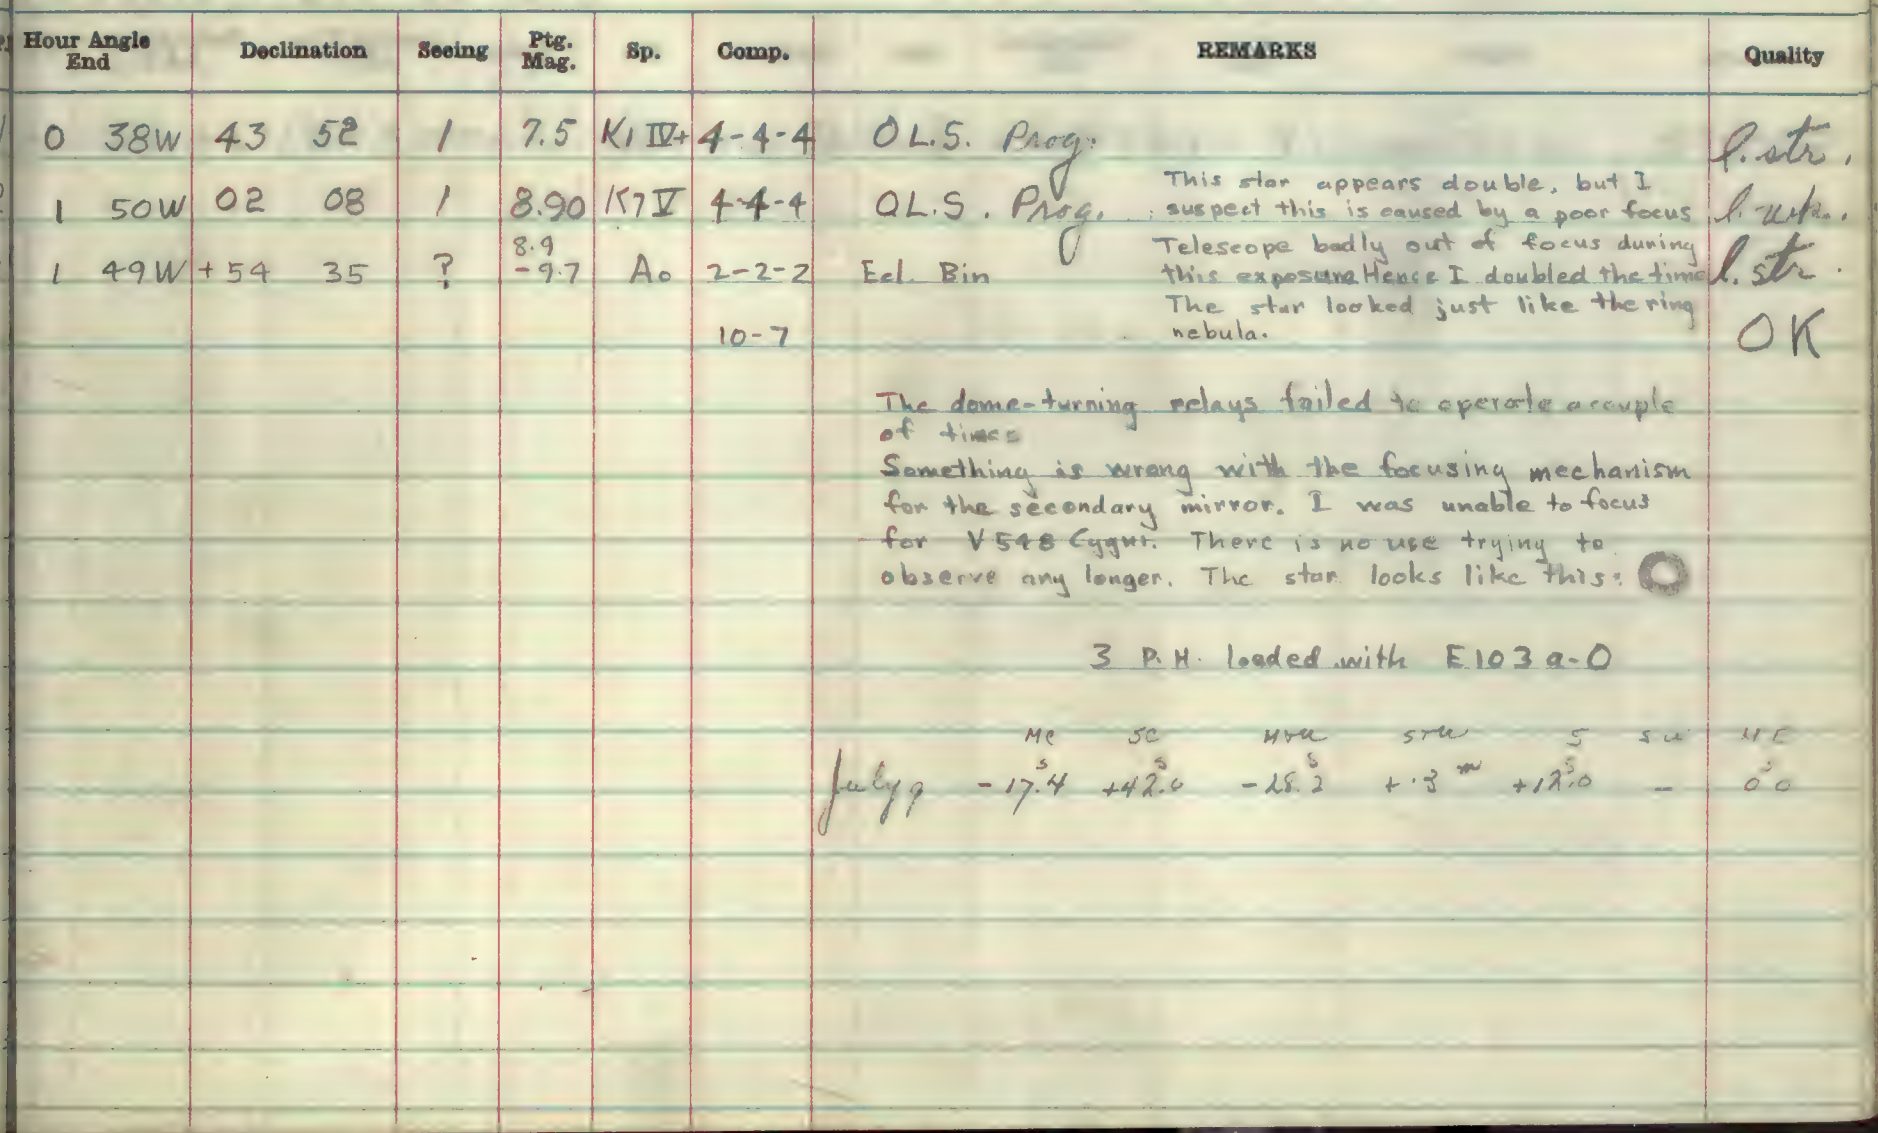 Hour Angle End Declination Seeing Ptg. Mag. Sp. Comp. REMARKS Quality
0 38W 43 52 1 7.5 K1 IV+ 4-4-4 O L.S. Prog. l. str.
1 50W 02 08 1 8.90 K7 V 4-4-4 O L.S. Prog. This star appears double, but I l. wk.
suspect this is caused by a poor focus
1 49W +54 35 ? 8.9 -9.7 A0 2-2-2 Ecl. Bin Telescope badly out of focus during l. str.
this exposure Hence I doubled the time
The star looked just like the ring
10-7 nebula. OK
The dome-turning relays failed to operate a couple
of times
Something is wrong with the focusing mechanism
for the secondary mirror. I was unable to focus
for V548 Cygni. There is no use trying to
observe any longer. The star looks like this:
3 P.H. loaded with E103a-O
MC SC S
July 9 -17.4s +42.0s -28.2s +.3m +12.0s — 0s0